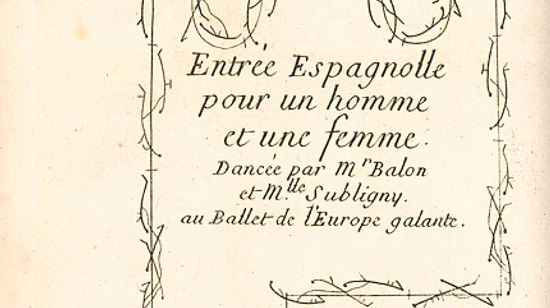 Entrée Espagnolle
pour un homme
et une femme.
Dancée par Mr Balon
et Mlle Subligny.
au Ballet de l'Europe galante.